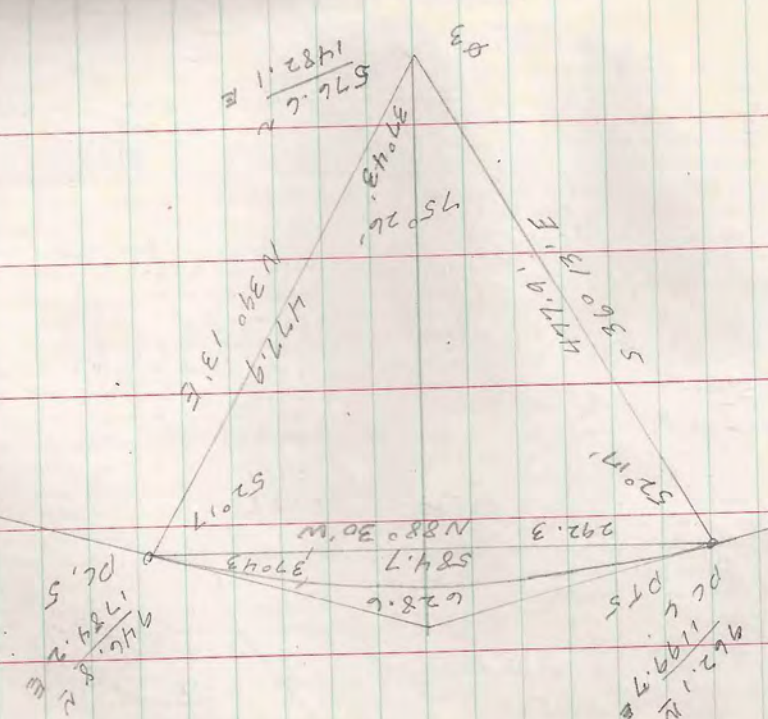 962.1 N
1199.7 E
PC 4
PT 5
946.8 N
1784.2 E
PC, 5
628.6
584.7
37°43'
292.3
N88° 30'W
52°17'
52°17
S 36° 13' E
477.9'
N 39° 13' E
477.9
75° 26'
37°43'
576.6 N
1482.1 E